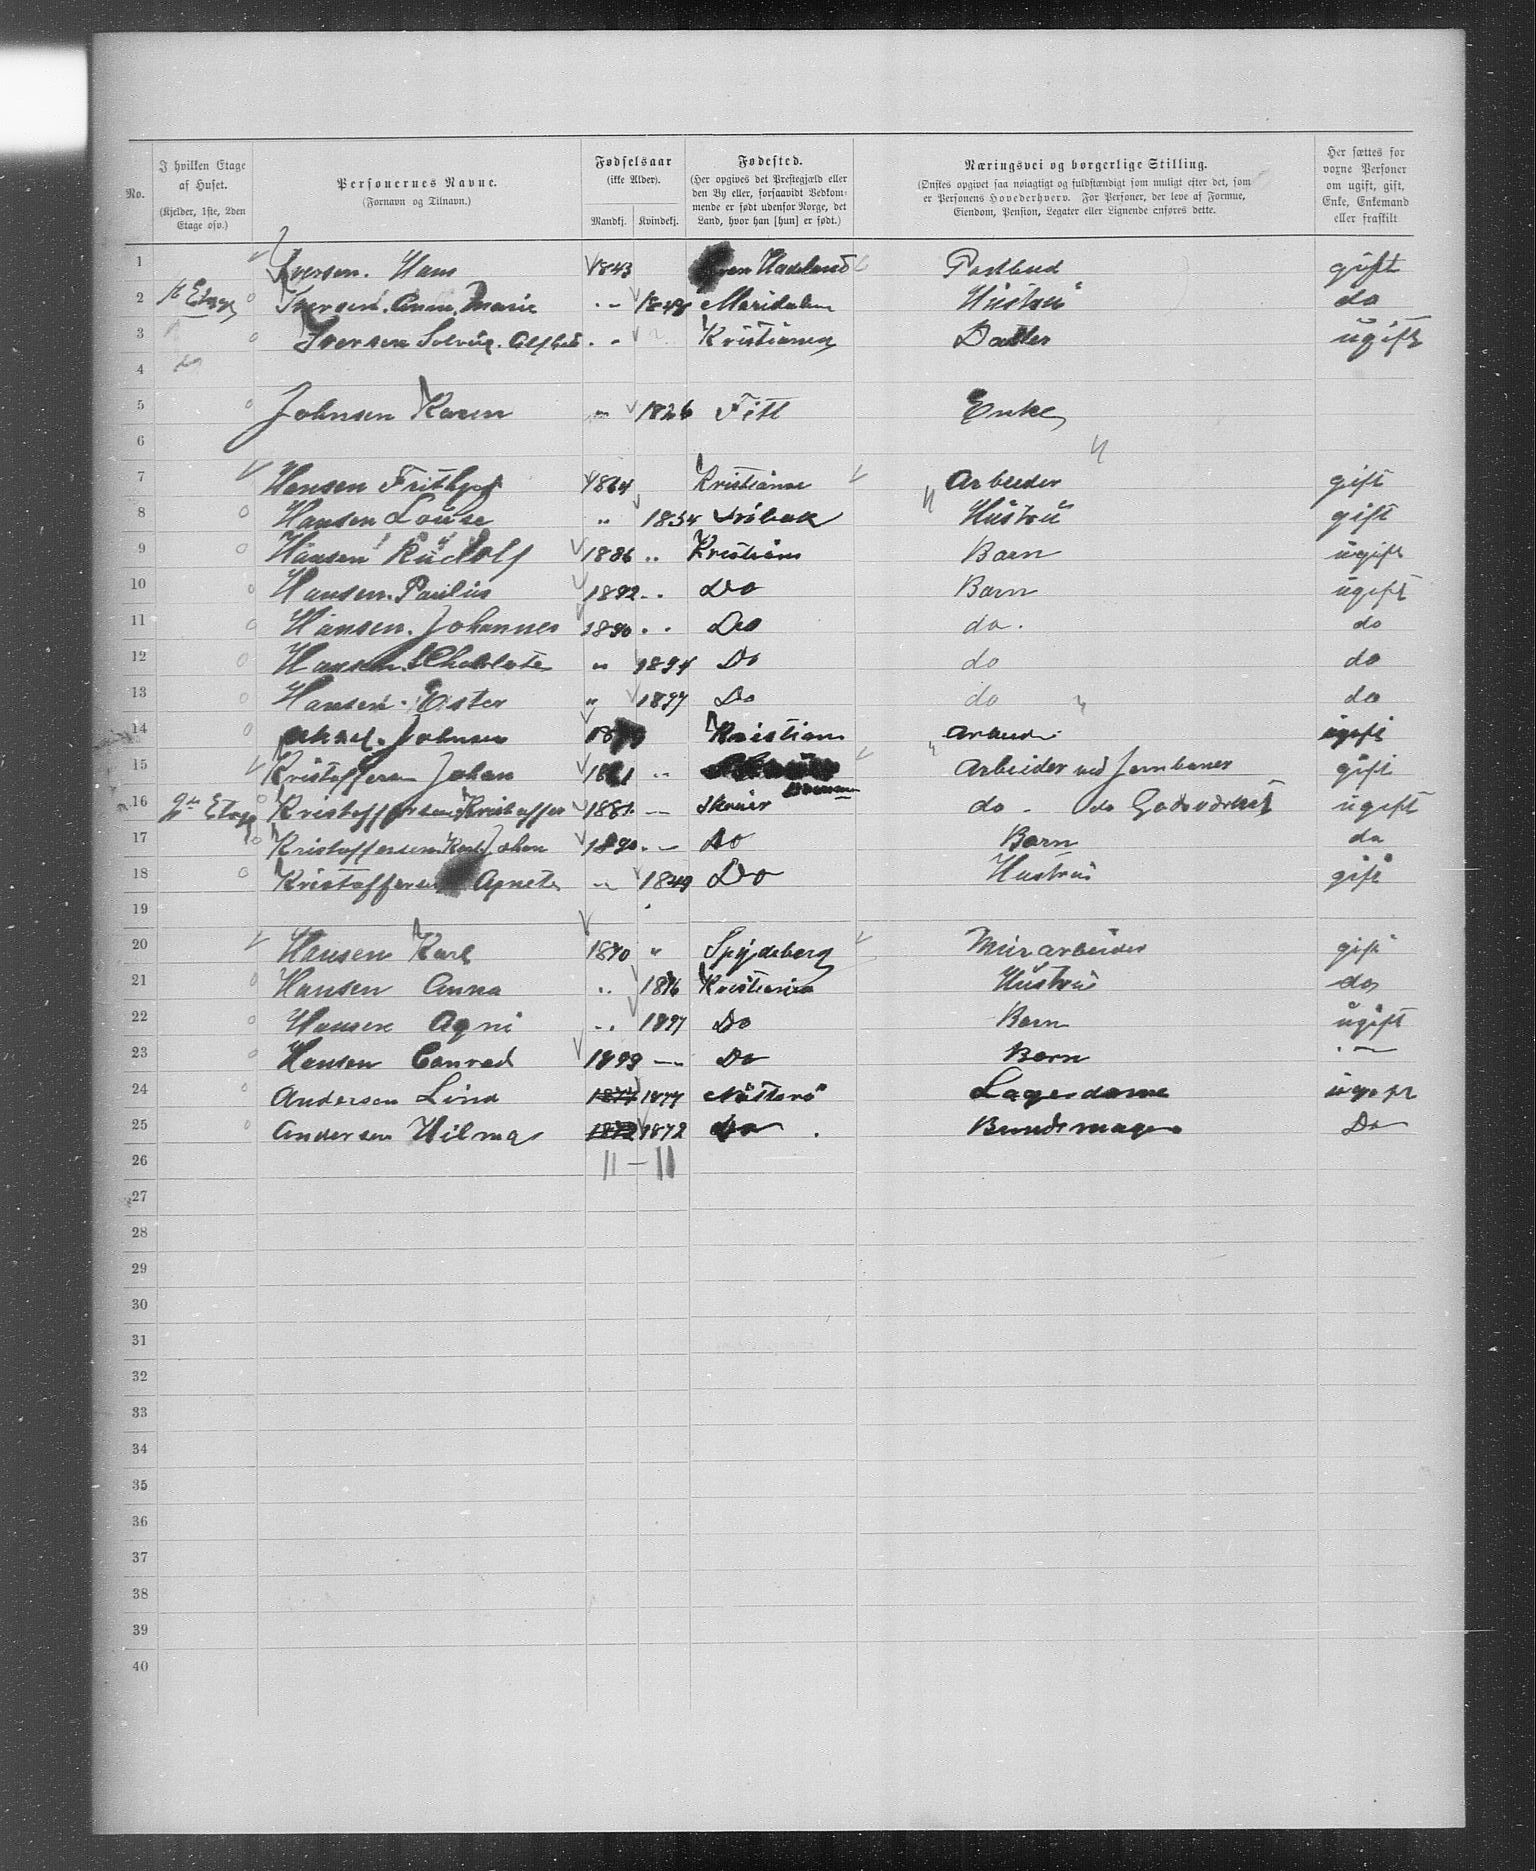 No.
I hvilken Etage af Huset.
(Kjelder, 1ste, 2den Etage osv.)
Personernes Navne.
(Fornavn og Tilnavn.)
Fødselsaar
(ikke Alder).
Mandkj. Kvindekj.
Fødested.
(Her opgives det Prestegjæld eller den By eller, forsaavidt Vedkommende er født udenfor Norge, det Land, hvor han [hun] er født.)
Næringsvei og borgerlige Stilling.
(Ønskes opgivet saa nøiagtigt og fuldstændigt som muligt efter det, som er Personens Hovederhverv. For Personer, der leve af Formue, Eiendom, Pension, Legater eller Lignende anføres dette.
Her sættes for voxne Personer om ugift, gift, Enke, Enkemand eller fraskilt
1 Iversen. Hans 1843 Hadeland Postbud gift
2 1st Etage Iversen. Anna Marie " 1848 Maridalen Hustru do
3 Iversen Solvig. " Kristiania Datter ugift
4
5 Johnsen Karen " 1826 Fitt Enke
6
7 Hansen Frithjof 1864 Kristiania Arbeider gift
8 Hansen Louise " 1854 Drøbak Hustru gift
9 Hansen Rudolf 1886 " Kristiania Barn ugift
10 Hansen. Paulus 1892 " Do Barn ugift
11 Hansen. Johannes 1890 " Do do. do
12 Hansen. Charlotte " 1894 Do do do
13 Hansen. Ester " 1897 Do do do
14 Johnsen Kristiania ugift
15 Kristoffersen Johan " Arbeider ved Jernbanen gift
16 2den Etage Kristoffersen Kristoffer 1881 — do - do Godsværket ugift
17 Kristoffersen Karl Johan 1890 — Do Barn do
18 Kristoffersen Agnete " 1849 Do Hustru gift
19
20 Hansen Karl 1870 " Spydeberg Murarbeider gift
21 Hansen Anna " 1876 Kristiania Hustru do
22 Hansen Agni " 1897 Do Barn ugift
23 Hansen Conrad 1899 — Do Barn —
24 Andersen Lina 1877 1877 Nøtterø Lagerdame ugift
25 Andersen Hilma 1872 1872 do Buntmager Do
26 11 — 11
27
28
29
30
31
32
33
34
35
36
37
38
39
40